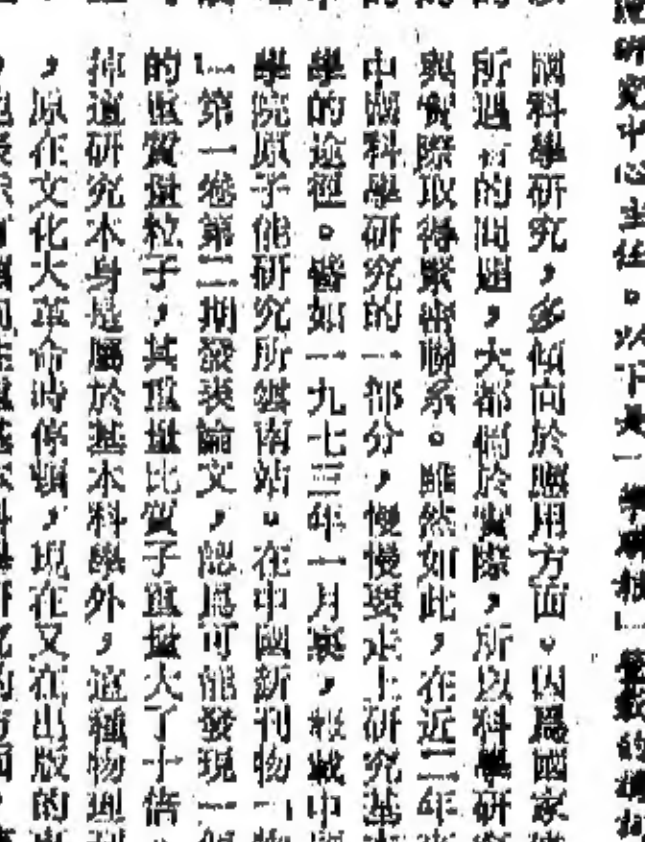 究中心主任。以下是
國科學研究，多傾向於應用方面。因爲國家
所遇着的問題，大都偏於實際，所以科學研
與實際取得緊密聯系。雖然如此，在近二年
中國科學研究的一部分，慢慢要走上研究基
學的途徑。譬如一九七三年一月裏，報載中
學院原子能研究所雲南站。在中國新刊物「物
」第一卷第二期發表論文，認爲可能發現一
的重質量粒子，其重量比質子重量大了十倍
這研究本身是屬於基本科學外，這種物理
，原在文化大革命時停頓，現在又在出版的